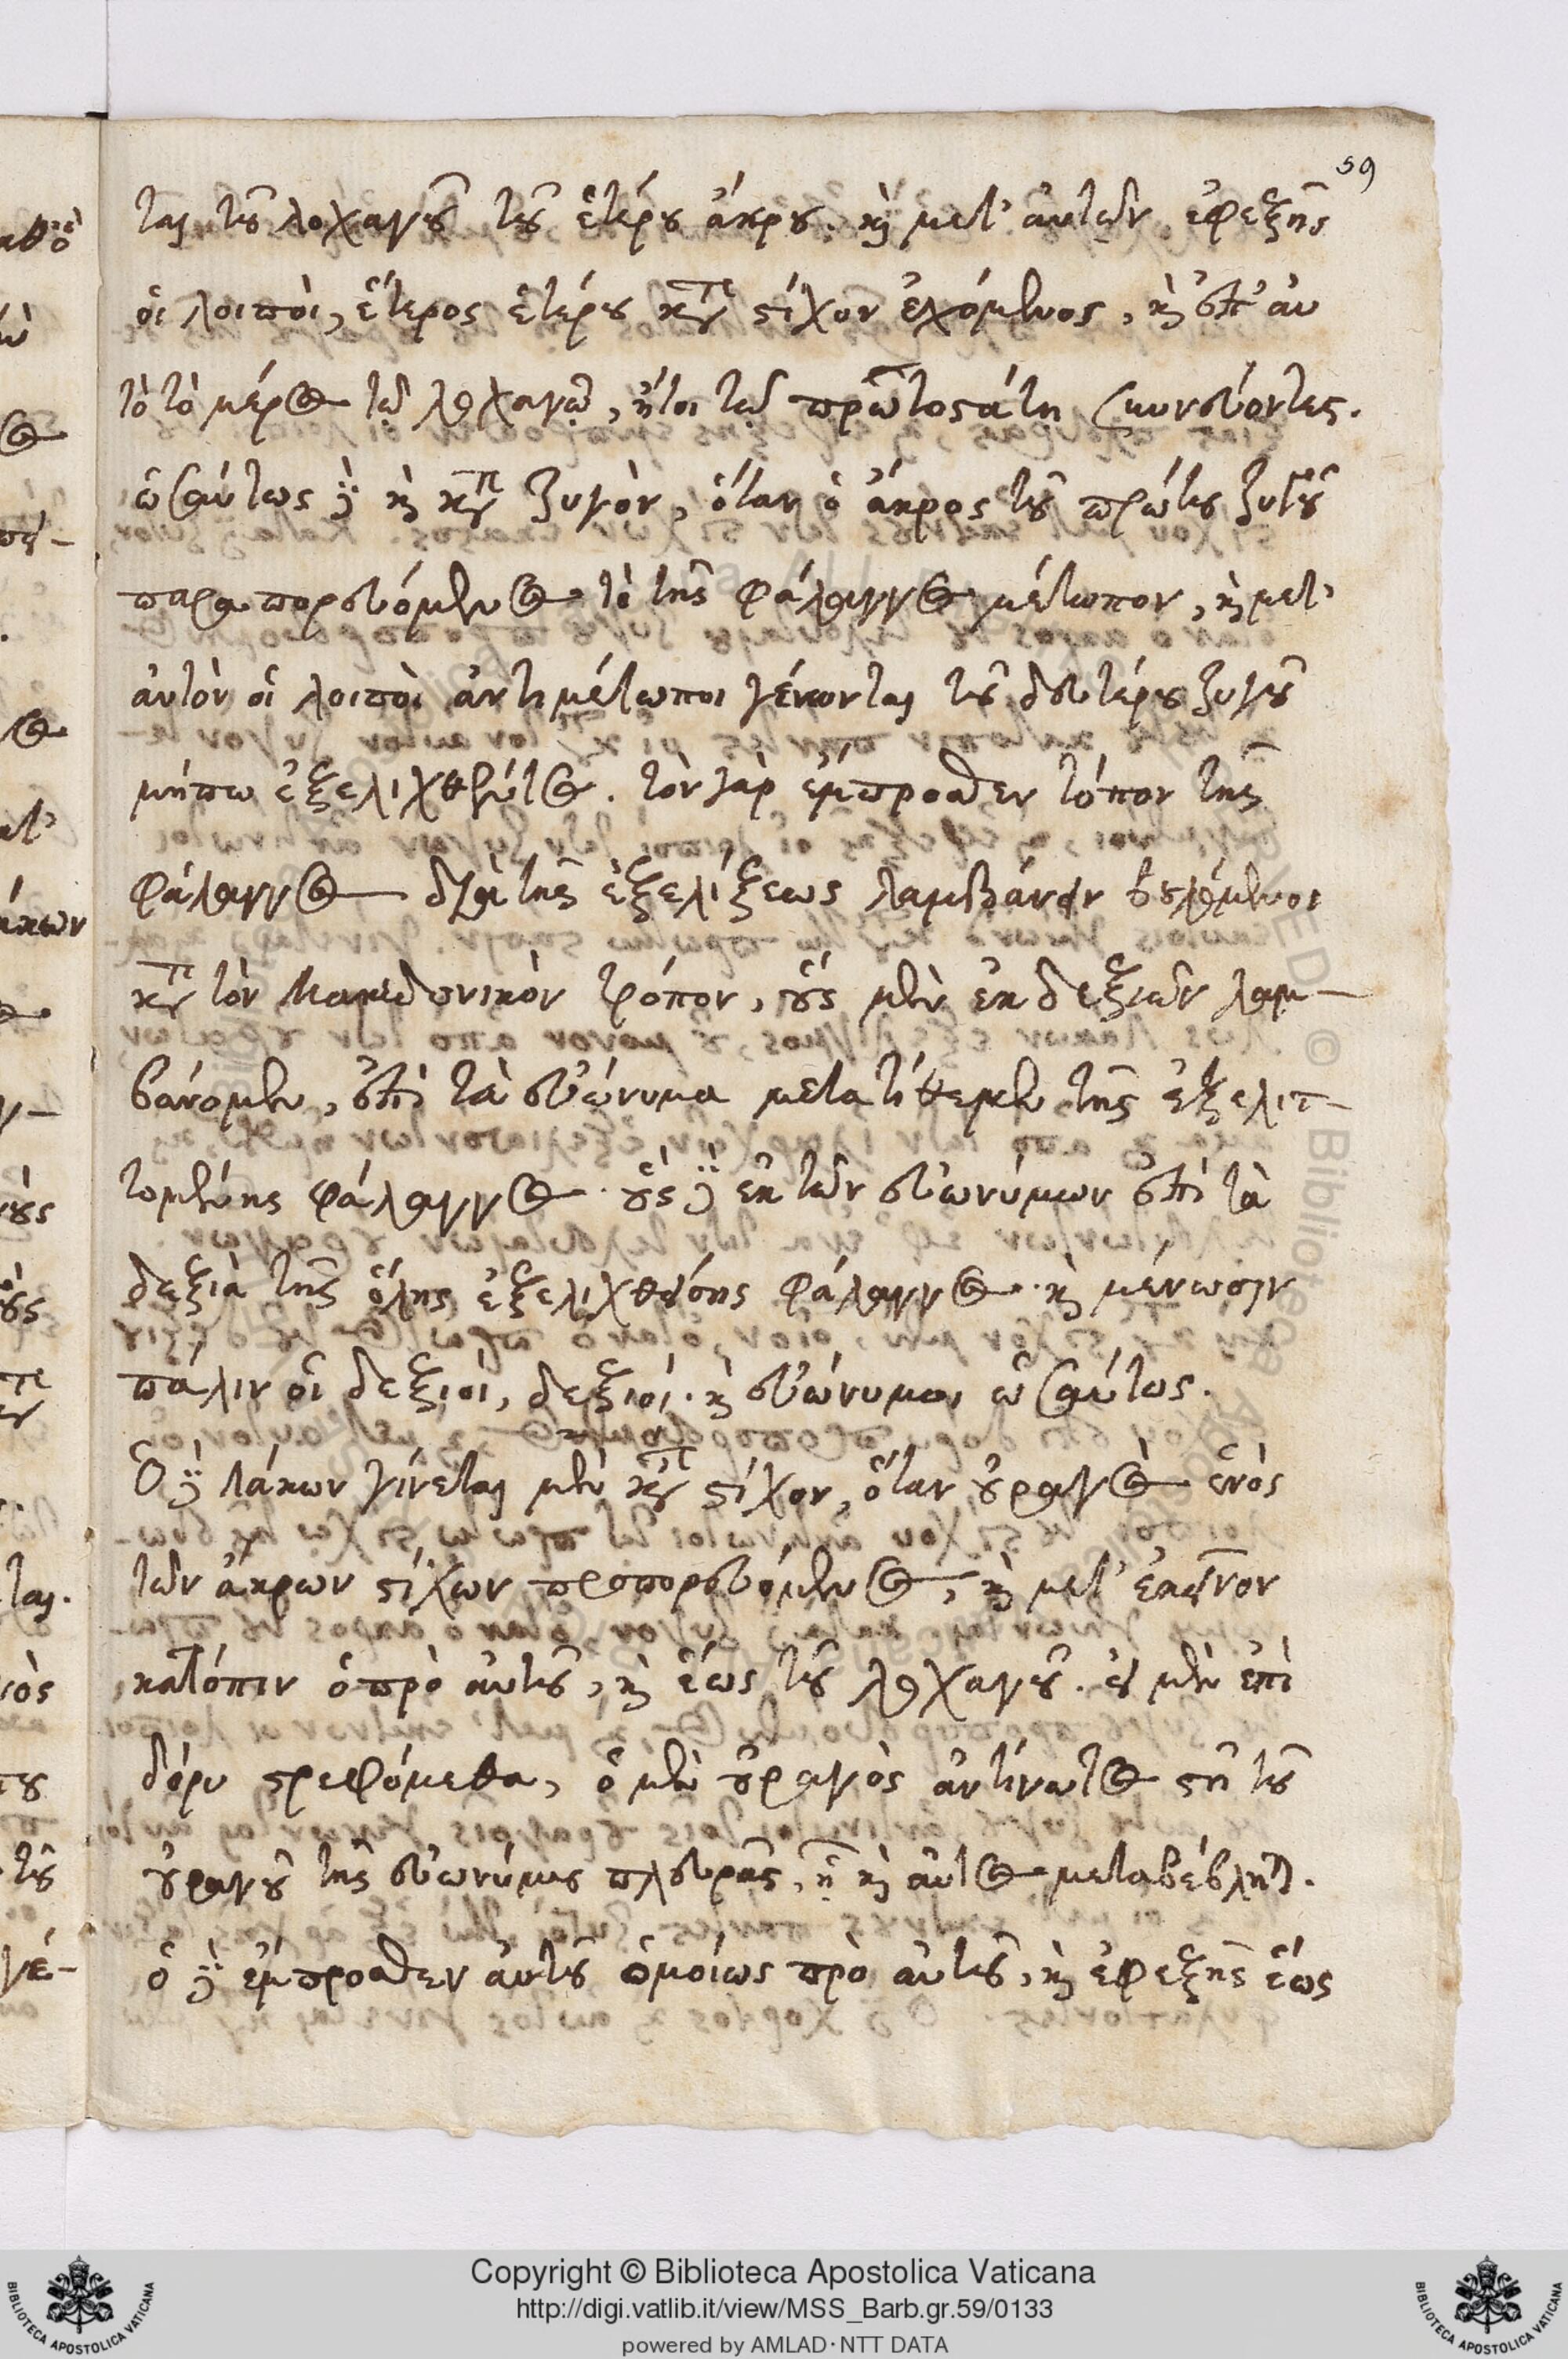 59
ται τοῦ λοχαγοῦ τοῦ ἑτέρου ἄκρου. καὶ μετ' αὐτῶν ἐφεξῆς
οἱ λοιποὶ, ἕτερος ἑτέρου κατὰ στίχον ἐχόμενος, καὶ ἐπ' αυ
τὸ τὸ μέρος τῷ λοχαγῷ, ἤτοι τῷ πρωτοστάτῃ συννεύοντες.
ὡσαύτως δὲ καὶ κατὰ ζυγὸν, ὅταν ὁ ἄκρος τοῦ πρώτου ζυγοῦ
παραπορευόμενος τὸ τῆς φάλαγγος μέτωπον, καὶ μετ'
αὐτὸν οἱ λοιποὶ ἀντιμέτωποι γένωνται τοῦ δευτέρου ζυγοῦ
μήπω ἐξελιχθέντος. τὸν γὰρ ἔμπροσθεν τόπον τῆς
φάλαγγος διὰ τῆς ἐξελίξεως λαμβάνειν βουλόμενοι
κατὰ τὸν Μακεδονικὸν τρόπον, οὓς μὲν ἐκ δεξιῶν λαμ-
βάνομεν, ἐπὶ τὰ εὐώνυμα μετατίθεμεν τῆς ἐξελιτ-
τομένης φάλαγγος. οὓς δὲ ἐκ τῶν εὐωνύμων ἐπὶ τὰ
δεξιὰ τῆς ὅλης ἐξελιχθείσης φάλαγγος. καὶ μένωσιν
πάλιν οἱ δεξιοὶ, δεξιοί. καὶ εὐώνυμοι ὡσαύτως.
Ὁ δὲ λάκων γίνεται μὲν κατὰ στίχον, ὅταν οὐραγὸς ἑνὸς
τῶν ἄκρων στίχων προπορευόμενος, καὶ μετ' ἐκεῖνον
κατόπιν ὁ πρὸ αὐτοῦ, καὶ ἕως τοῦ λοχαγοῦ. εἰ μὲν ἐπὶ
δόρυ στρεφόμεθα, ὁ μὲν οὐραγὸς ἀντίνωτος στῇ τοῦ
οὐραγοῦ τῆς εὐωνύμου πλευρᾶς, ᾗ καὶ αὐτὸς μεταβέβληται.
ὁ δὲ ἔμπροσθεν αὐτοῦ ὁμοίως πρὸ αὐτοῦ, καὶ ἐφεξῆς ἕως
Copyright © Biblioteca Apostolica Vaticana
http://digi.vatlib.it/view/MSS_Barb.gr.59/0133
powered by AMLAD·NTT DATA
BIBLIOTECA APOSTOLICA VATICANA
BIBLIOTECA APOSTOLICA VATICANA